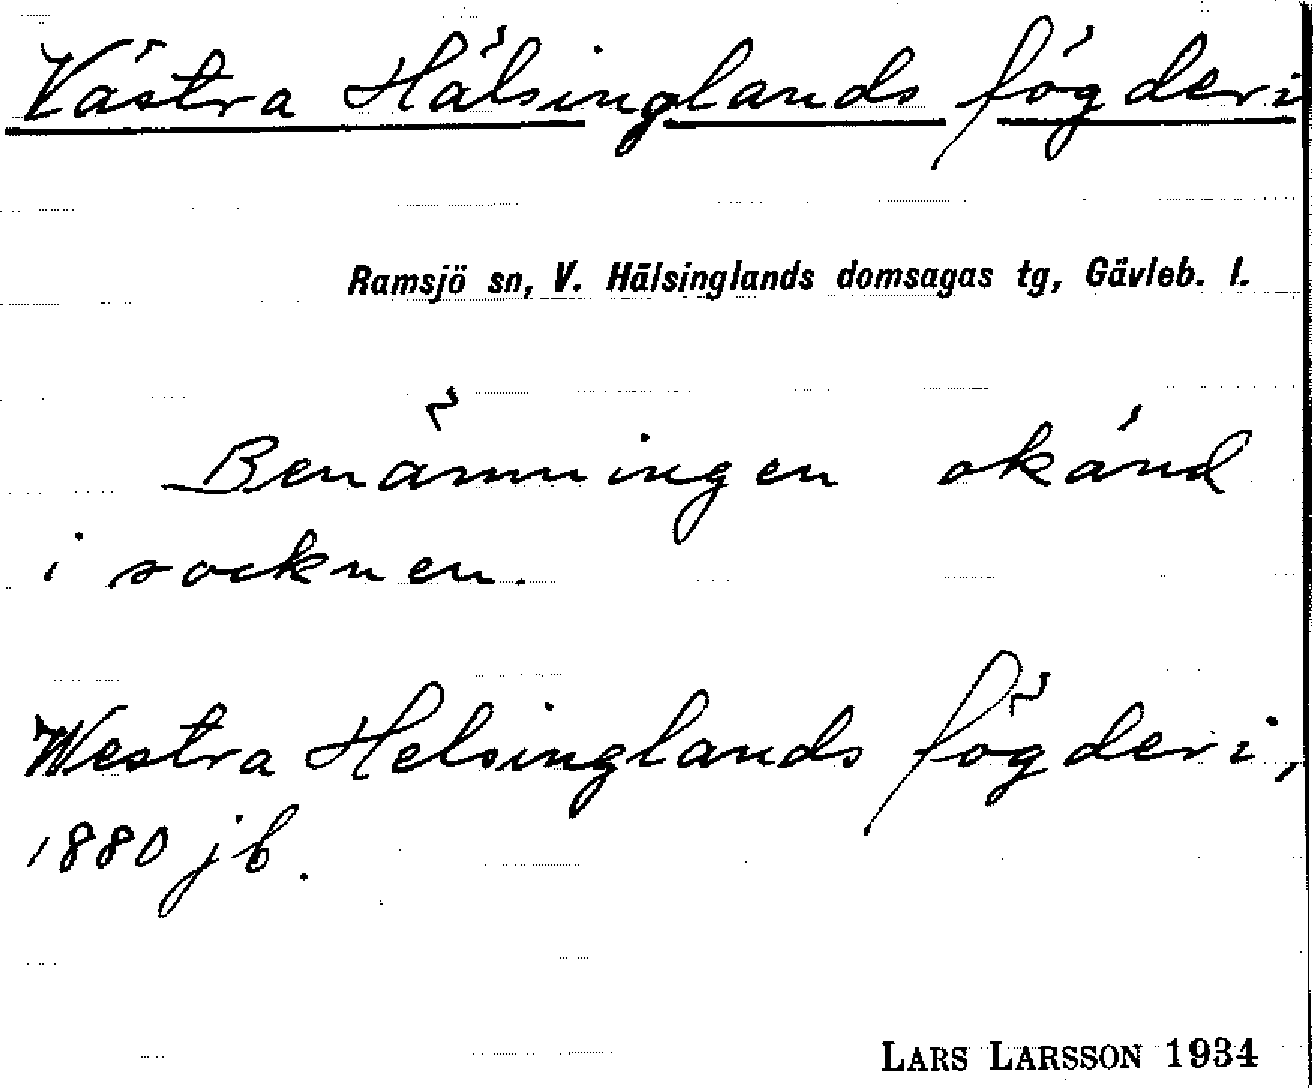 Västra Hälsinglands fögderi
Ramsjö sn, V. Hälsinglands domsagas tg, Gävleb. l.
Benämningen okänd
i socknen.
Westra Helsinglands fögderi,
1880 jb.
LARS LARSSON 1934